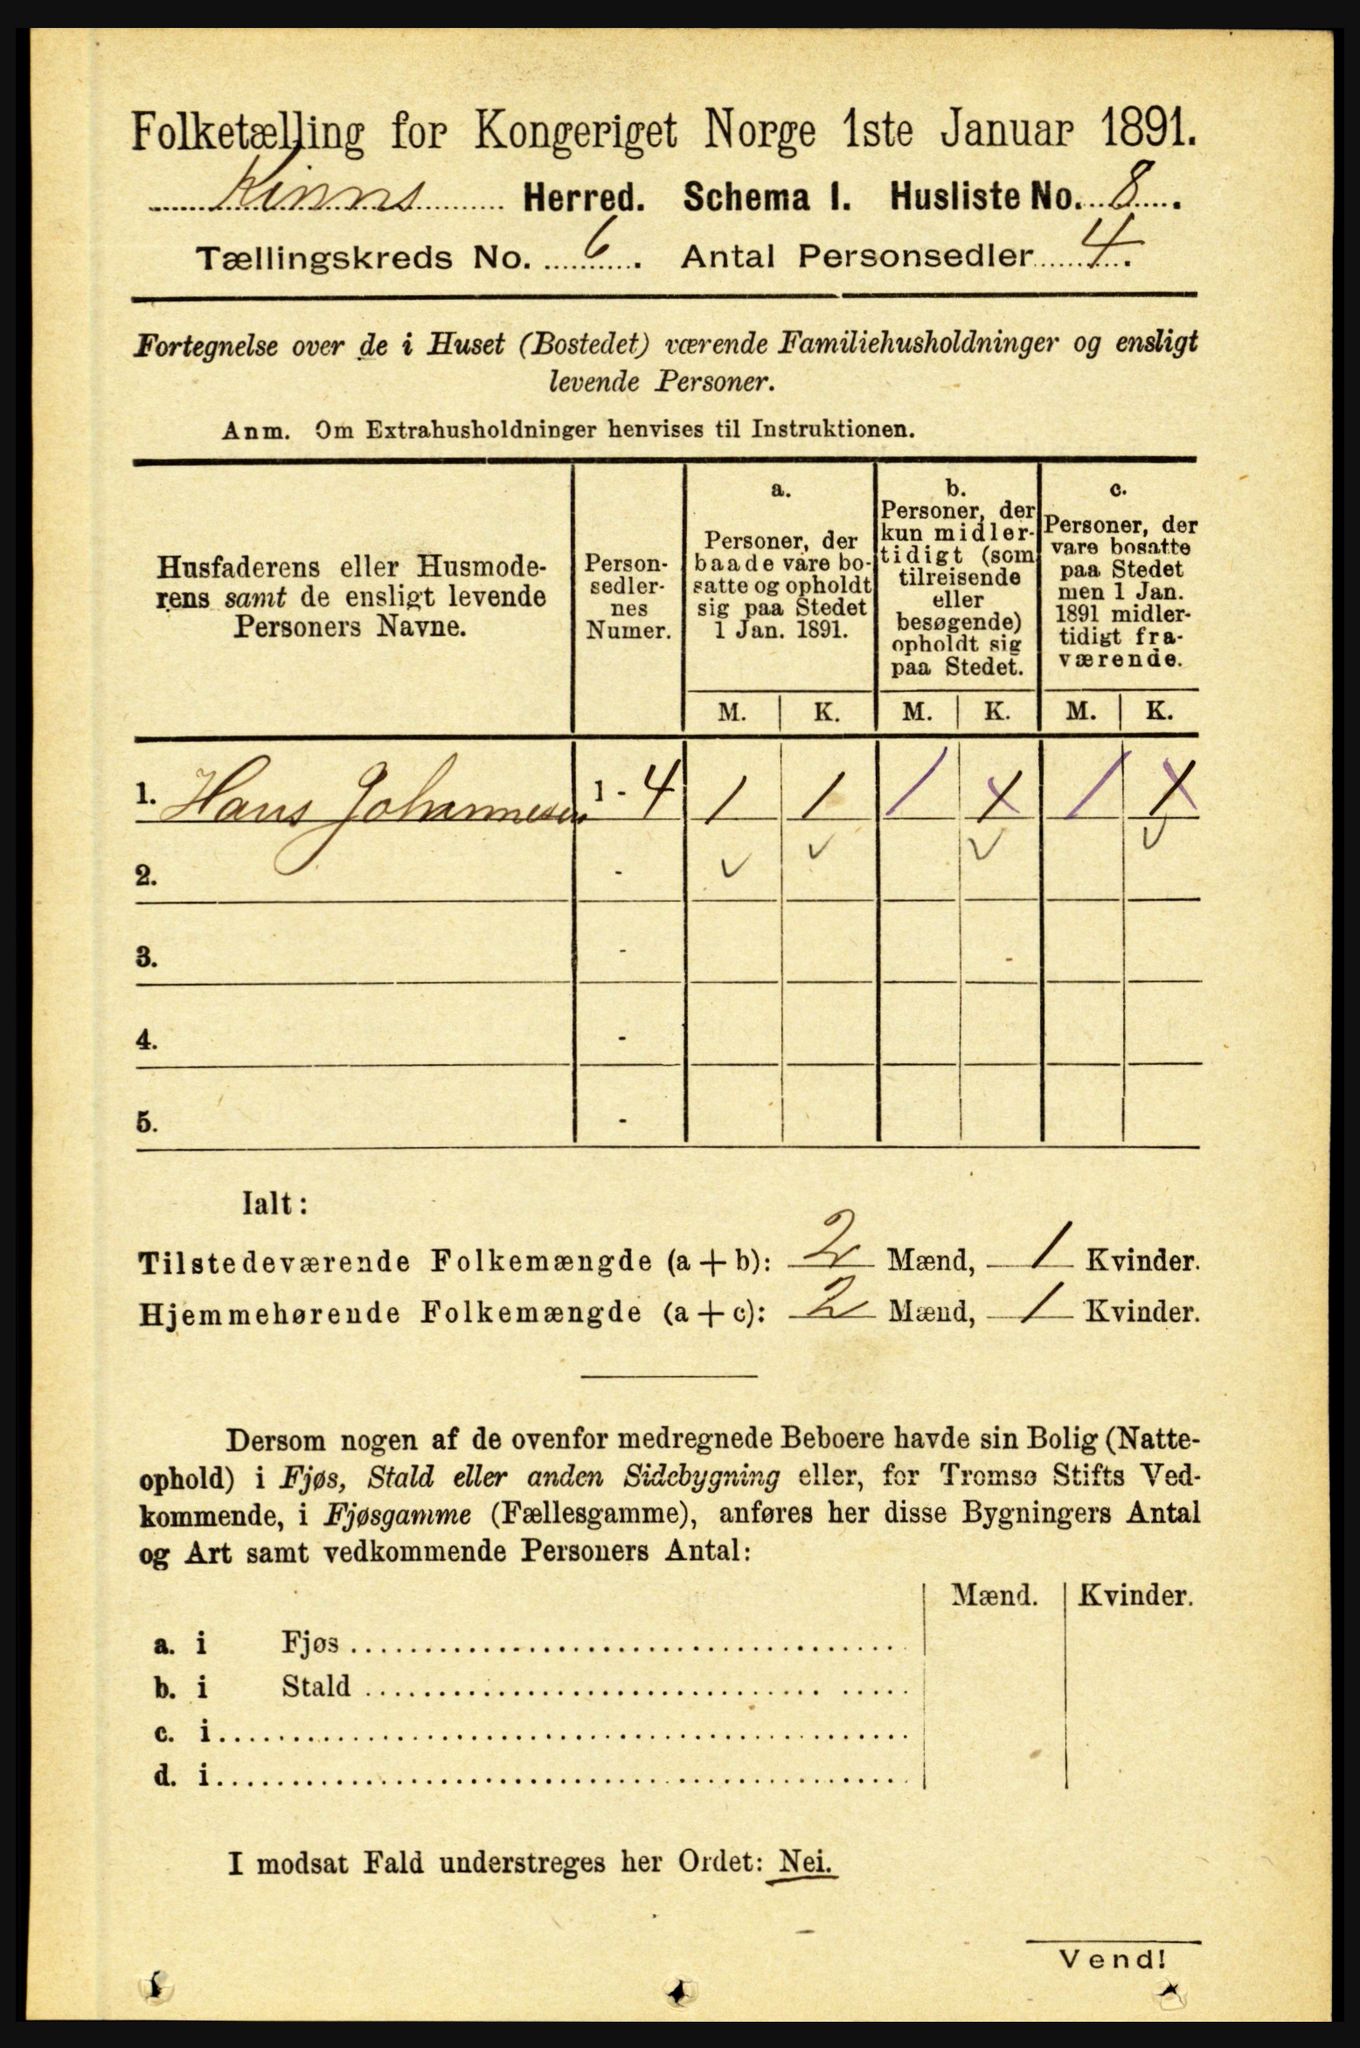 Folketælling for Kongeriget Norge 1ste Januar 1891.
Kinns Herred. Schema I. Husliste No. 8.
Tællingskreds No. 6. Antal Personsedler 4.
Fortegnelse over de i Huset (Bostedet) værende Familiehusholdninger og ensligt
levende Personer.
Anm. Om Extrahusholdninger henvises til Instruktionen.
Husfaderens eller Husmode-
rens samt de ensligt levende
Personers Navne.
Person-
sedler-
nes
Numer.
a.
Personer, der
baade vare bo-
satte og opholdt
sig paa Stedet
1 Jan. 1891.
b.
Personer, der
kun midler-
tidigt (som
tilreisende
eller
besøgende)
opholdt sig
paa Stedet.
c.
Personer, der
vare bosatte
paa Stedet
men 1 Jan.
1891 midler-
tidigt fra-
værende.
M. K. M. K. M. K.
1. Hans Johannesen 1 - 4 1 1 1 1 1 1
2. -
3. -
4. -
5. -
Ialt:
Tilstedeværende Folkemængde (a + b): 2 Mænd, 1 Kvinder.
Hjemmehørende Folkemængde (a + c): 2 Mænd, 1 Kvinder.
Dersom nogen af de ovenfor medregnede Beboere havde sin Bolig (Natte-
ophold) i Fjøs, Stald eller anden Sidebygning eller, for Tromsø Stifts Ved-
kommende, i Fjøsgamme (Fællesgamme), anføres her disse Bygningers Antal
og Art samt vedkommende Personers Antal:
Mænd. Kvinder.
a. i Fjøs
b. i Stald
c. i
d. i
I modsat Fald understreges her Ordet: Nei.
Vend!